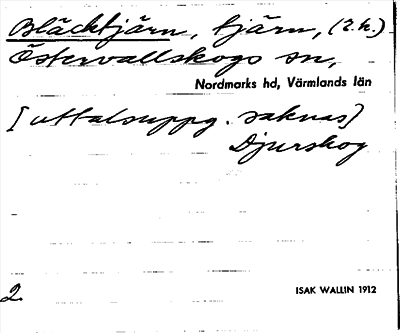 Bläcktjärn, tjärn, (2.h.)
Östervallskogs sn,
Nordmarks hd, Värmlands län
[uttalsuppg. saknas]
Djurskog
2. ISAK WALLIN 1912